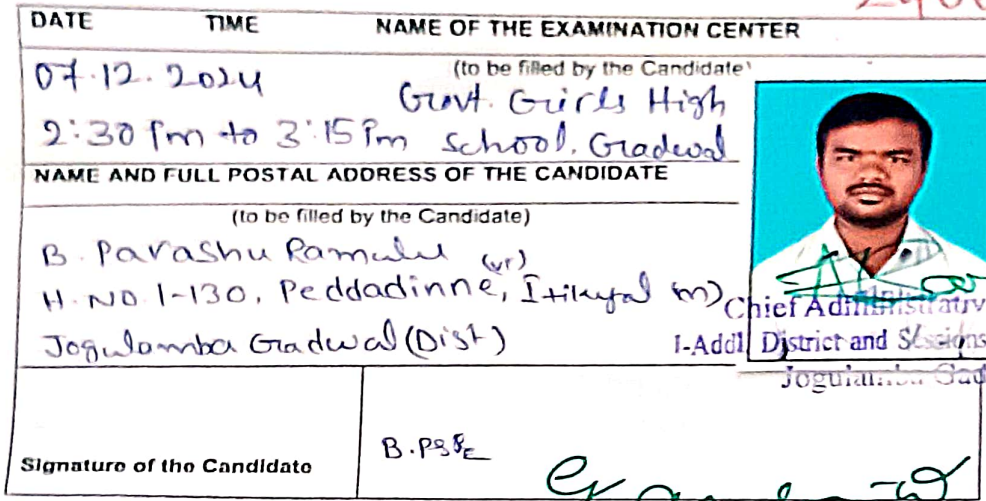 DATE TIME NAME OF THE EXAMINATION CENTER
(to be filled by the Candidate)
07.12.2024 Govt. Girls High
2:30 Pm to 3:15 Pm School, Gradwal
NAME AND FULL POSTAL ADDRESS OF THE CANDIDATE
(to be filled by the Candidate)
B. Parashu Ramulu
H.NO. 1-130, Peddadinne, (vi) Itikyal (m)
Jogulamba Gradwal (Dist)
Chief Administrativ
I-Addl. District and Sessions
Jogulamba Gad
Signature of the Candidate